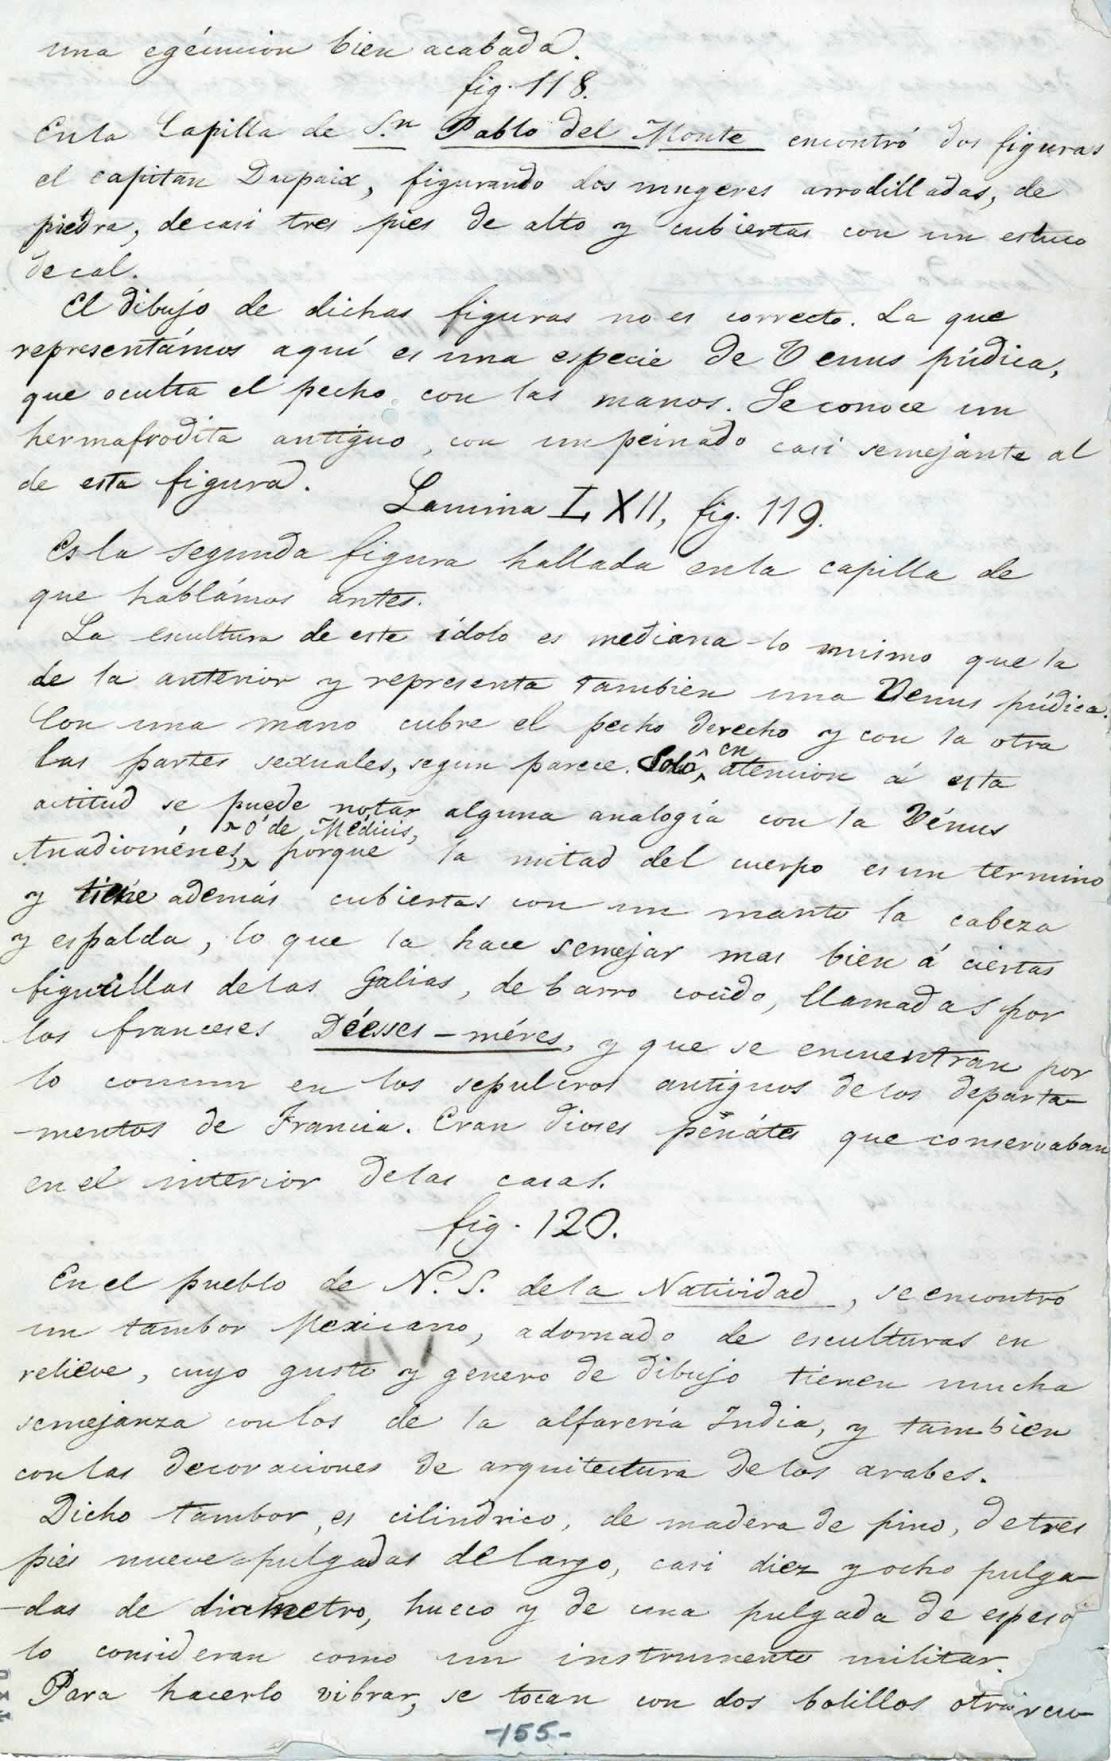 una egécucion bien acabada.
fig. 118.
En la Capilla de S.n Pablo del Monte encontró dos figuras
el capitan Dupaix, figurando dos mugeres arrodilladas, de
piedra, de casi tres pies de alto y cubiertas con un estuco
de cal.
El dibujo de dichas figuras no es correcto. La que
representámos aquí es una especie de Venus púdica,
que oculta el pecho con las manos. Se conoce un
hermafrodita antiguo, con un peinado casi semejante al
de esta figura.
Lamina LXII, fig. 119.
Es la segunda figura hallada en la capilla de
que hablámos antes.
La escultura de este ídolo es mediana lo mismo que la
de la anterior y representa tambien una Venus púdica.
Con una mano cubre el pecho derecho y con la otra
las partes sexuales, segun parece. Solo en atencion á esta
actitud se puede notar alguna analogía con la Vénus
Anadioménes, ó de Médicis, porque la mitad del cuerpo es un termino
y tiene además cubiertas con un manto la cabeza
y espalda, lo que la hace semejar mas bien á ciertas
figurillas de las Galias, de barro cocido, llamadas por
los franceses Déesses-méres, y que se encuentran por
lo comun en los sepulcros antiguos de los departa-
-mentos de Francia. Eran dioses penátes que conservaban
en el interior de las casas.
fig. 120.
En el pueblo de N. S. de la Natividad, se encontró
un tambor Mexicano, adornado de esculturas en
relieve, cuyo gusto y genero de dibujo tienen mucha
semejanza con los de la alfarería India, y tambien
con las decoraciones de arquitectura de los arabes.
Dicho tambor es cilindrico, de madera de pino, de tres
piés nueve pulgadas de largo, casi diez y ocho pulga-
-das de diametro, hueco y de una pulgada de espeso
lo consideran como un instrumento militar.
Para hacerlo vibrar, se tocan con dos bolillos
-155-